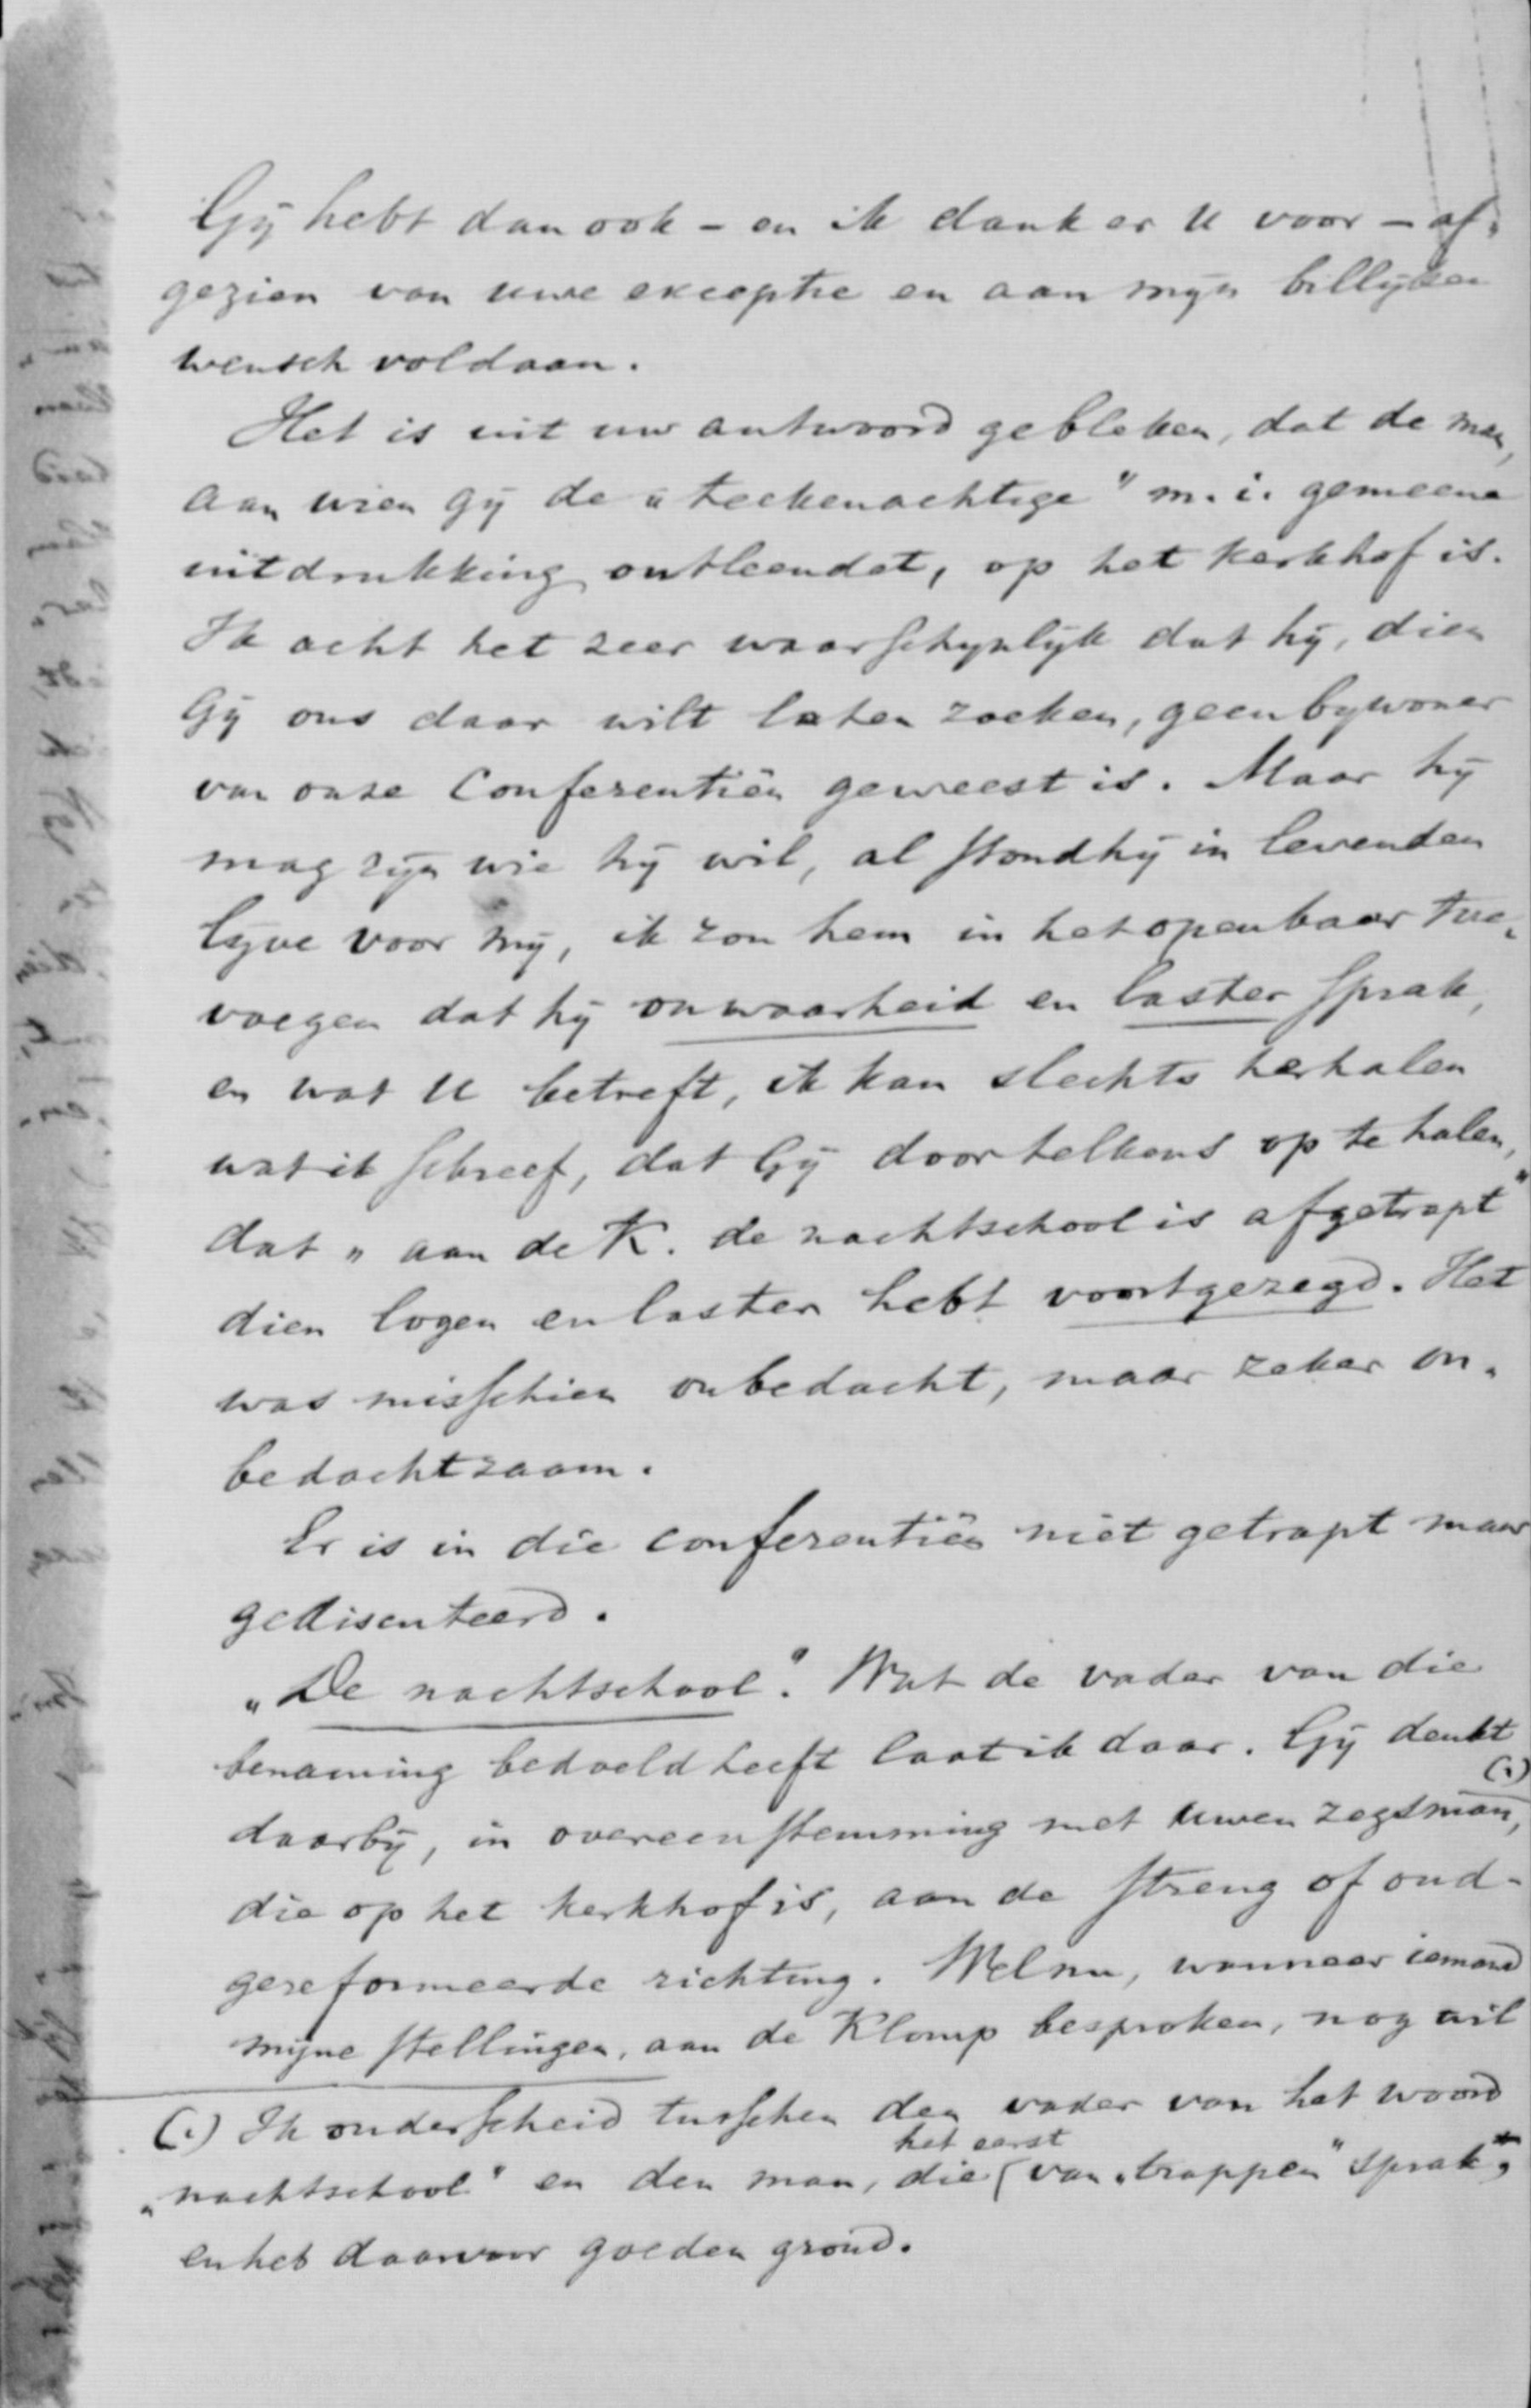 Gij hebt dan ook – en ik dank er U voor – af-
gezien van uwe exceptie en aan mijn billijken
wensch voldaan.
Het is uit uw antwoord gebleken, dat de man,
aan wien gij de „teekenachtige" m. i. gemeene
uitdrukking ontleendet, op het kerkhof is.
Ik acht het zeer waarschijnlijk dat hij, dien
Gij ons daar wilt laten zoeken, geen bijwoner
van onze Conferentiën geweest is. Maar hij
mag zijn wie hij wil, al stond hij in levenden
lijve voor mij, ik zou hem in het openbaar toe-
voegen dat hij onwaarheid en laster sprak,
en wat U betreft, ik kan slechts herhalen
wat ik schreef, dat Gij door telkens op te halen,
dat „aan de K. de nachtschool is afgetrapt"
dien logen en laster hebt voortgezegd. Het
was misschien onbedacht, maar zeker on-
bedachtzaam.
Er is in die conferentiën niet getrapt maar
gediscuteerd.
„De nachtschool". Wat de vader van die
benaming bedoeld heeft laat ik daar. Gij denkt
daarbij, in overeenstemming met uwen zegsman, (1)
die op het kerkhof is, aan de streng of oud-
gereformeerde richting. Welnu, wanneer iemand
mijne stellingen, aan de Klomp besproken, nog wil
(1) Ik onderscheid tusschen den vader van het woord
„nachtschool" en den man, die het eerst van „trappen" sprak,
en heb daarvoor goeden grond.